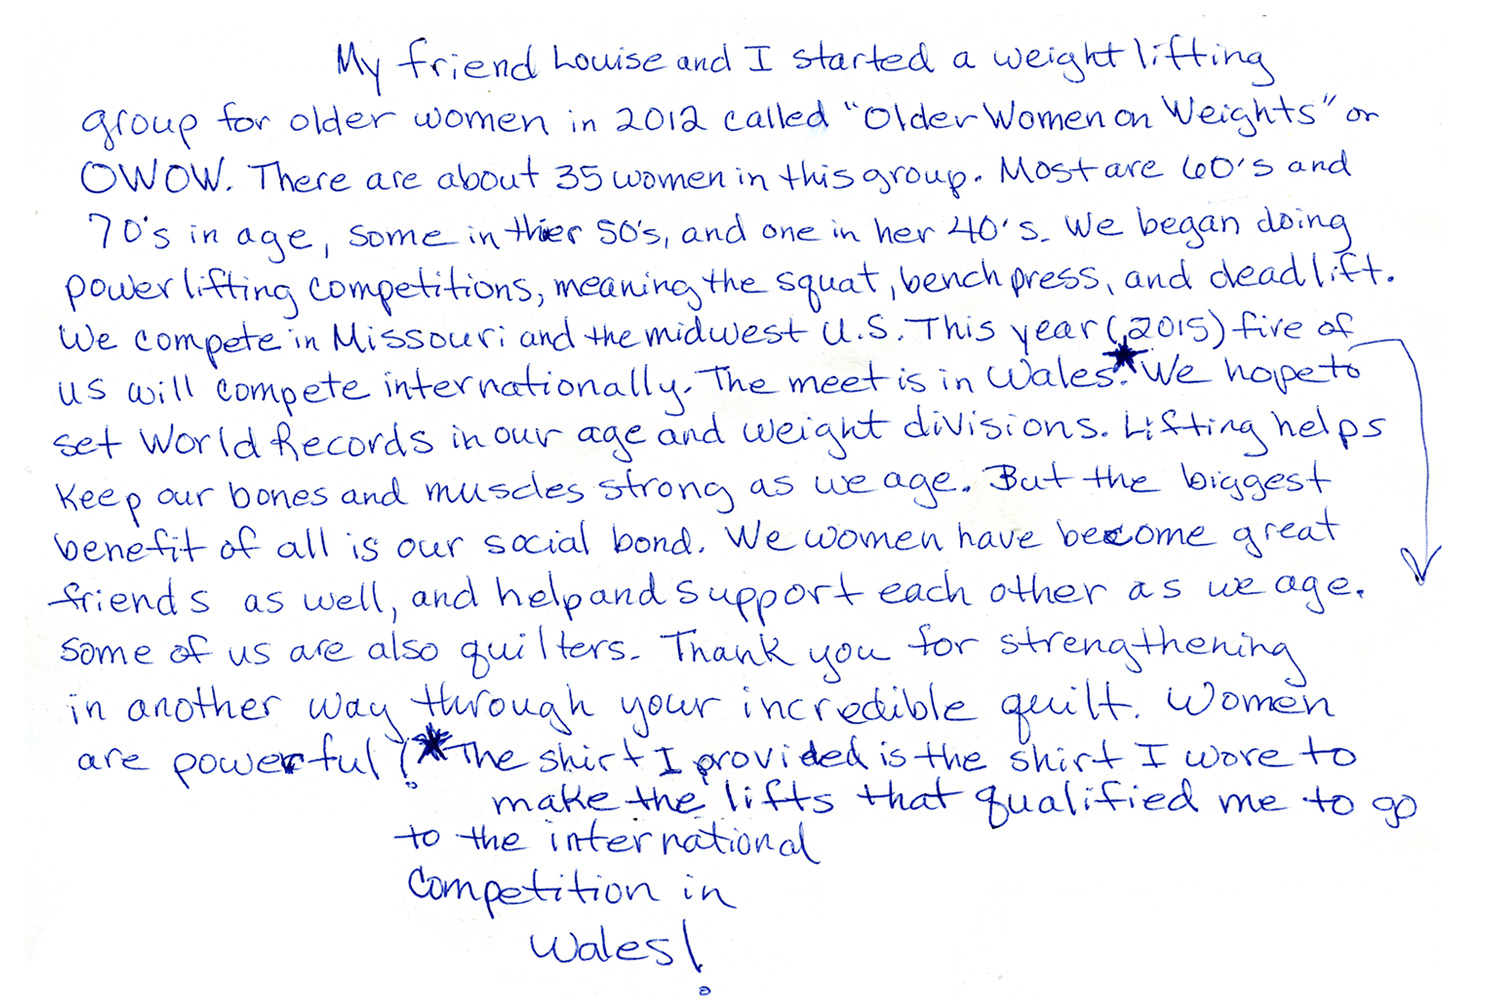 My friend Louise and I started a weight lifting
group for older women in 2012 called "Older Women on Weights" or
OWOW. There are about 35 women in this group. Most are 60's and
70's in age, some in thier 50's, and one in her 40's. We began doing
power lifting competitions, meaning the squat, bench press, and dead lift.
We compete in Missouri and the midwest U.S. This year (2015) five of
us will compete internationally. The meet is in Wales.* We hope to
set World Records in our age and weight divisions. Lifting helps
keep our bones and muscles strong as we age. But the biggest
benefit of all is our social bond. We women have become great
friends as well, and help and support each other as we age.
Some of us are also quilters. Thank you for strengthening
in another way through your incredible quilt. Women
are powerful! *The shirt I provided is the shirt I wore to
make the lifts that qualified me to go
to the international
Competition in
Wales!